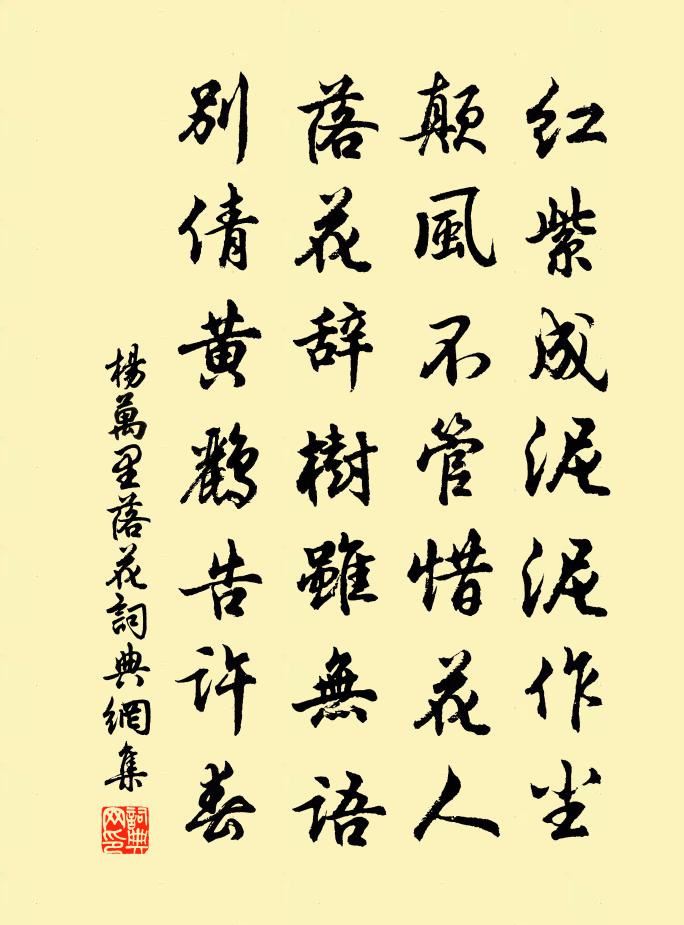 红紫成泥泥作尘
顛風不管惜花人
落花辞樹雖無語
別倩黄鸝告許春
楊萬里落花詞典網集
詞典网印